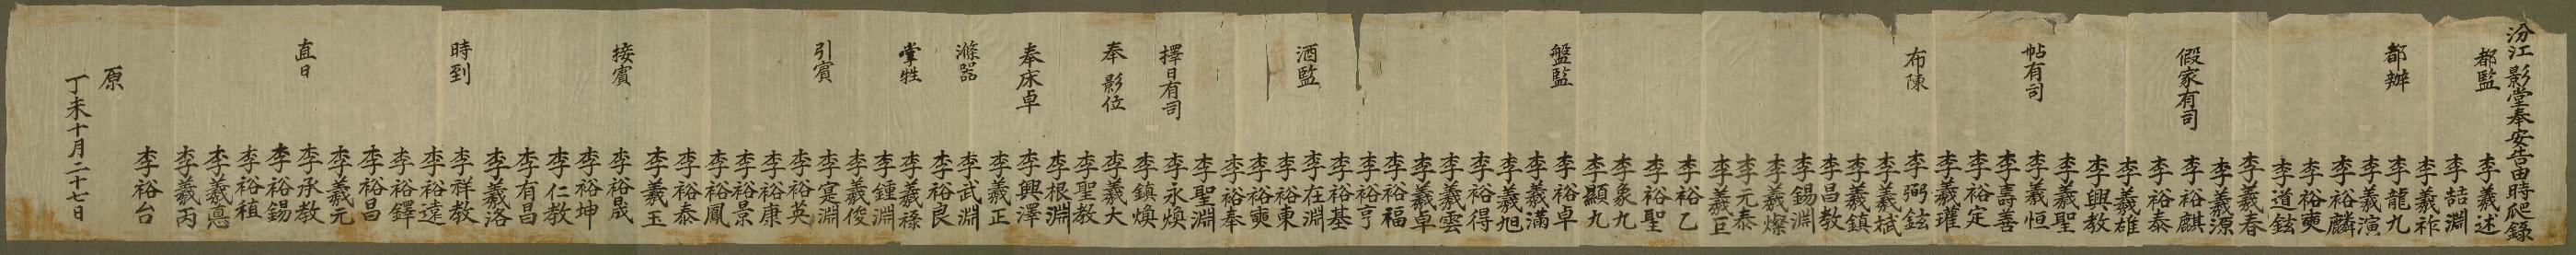 汾江影堂奉安告由時爬錄
都監 李羲述
李喆淵
李羲祚
都辦 李龍九
李羲演
李裕麟
李裕奭
李道鉉
李羲春
李羲源
假家有司 李裕麒
李裕泰
李羲雄
李興教
李羲聖
帖有司 李羲恒
李壽善
李裕定
李羲瓘
布陳 李弼鉉
李羲斌
李羲鎮
李昌教
李錫淵
李羲燦
李元泰
李羲豆
李裕乙
李裕聖
李象九
李顯九
盤監 李裕卓
李羲滿
李羲旭
李裕得
李羲雲
李羲卓
李裕福
李裕亨
李裕基
酒監 李在淵
李裕東
李裕奭
李裕奉
李聖淵
擇日有司 李永煥
李鎮煥
奉 影位 李羲大
李聖教
李根淵
奉床卓 李興澤
李羲正
滌器 李武淵
李裕良
掌牲 李羲祿
李鍾淵
李羲俊
引賓 李寔淵
李裕英
李裕康
李裕景
李裕鳳
李裕泰
李羲玉
接賓 李裕晟
李裕坤
李仁教
李有昌
李羲洛
時到 李祥教
李裕遠
李裕鐸
李裕昌
李羲元
直日 李承教
李裕錫
李裕稙
李羲悳
李羲丙
李裕台
原
丁未十月二十七日